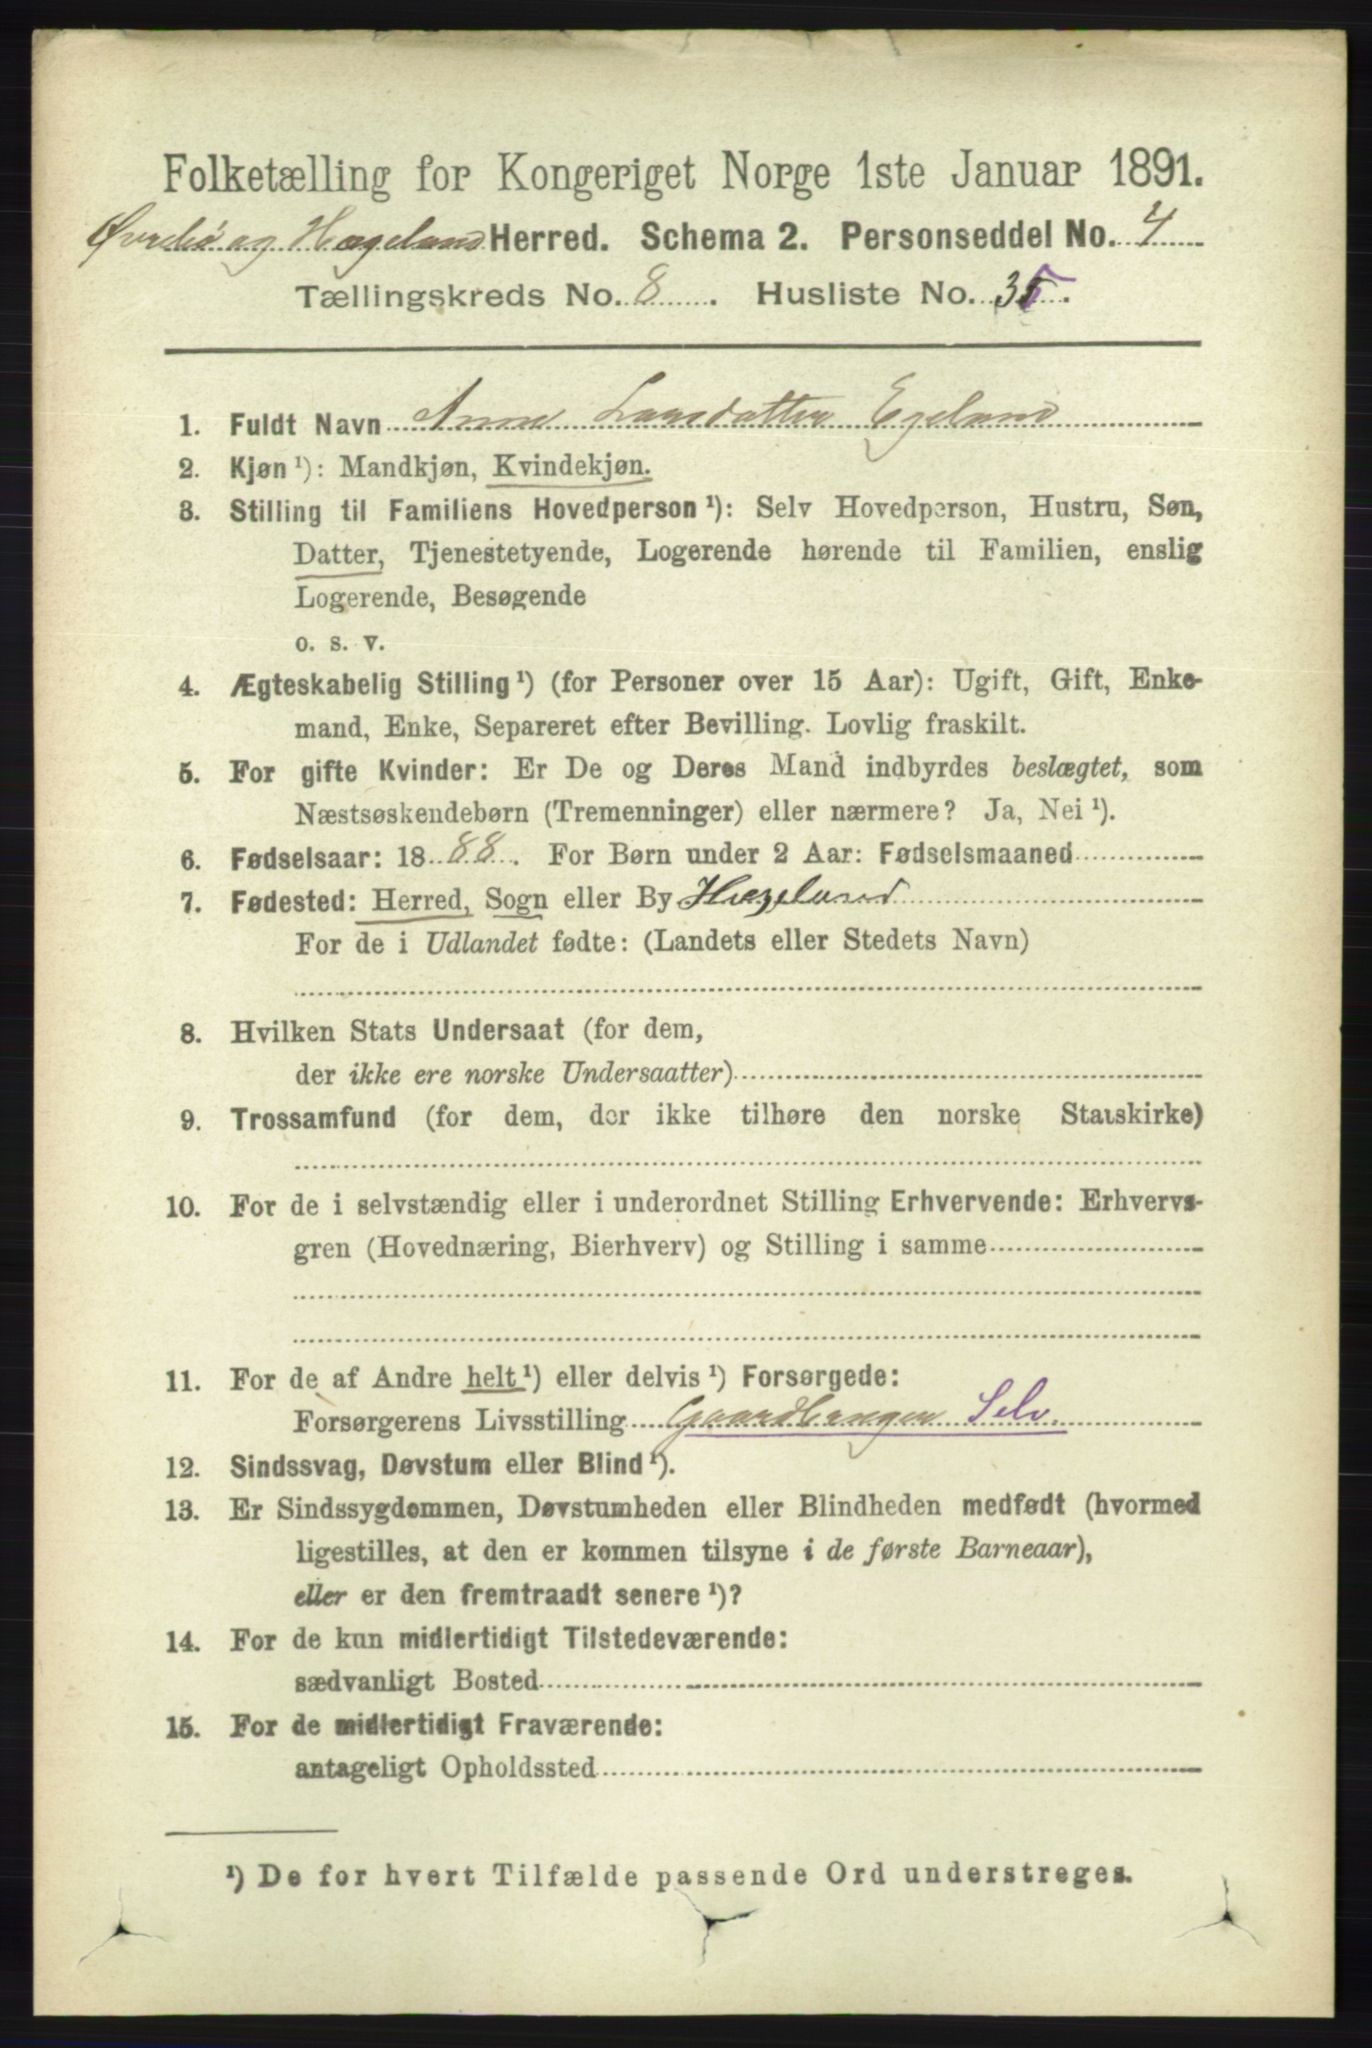 Folketælling for Kongeriget Norge 1ste Januar 1891.
Øvrebø og Hægeland Herred. Schema 2. Personseddel No. 4
Tællingskreds No. 8. Husliste No. 35.
1. Fuldt Navn Anne Larsdatter Egeland
2. Kjøn ¹): Mandkjøn, Kvindekjøn.
3. Stilling til Familiens Hovedperson ¹): Selv Hovedperson, Hustru, Søn,
Datter, Tjenestetyende, Logerende hørende til Familien, enslig
Logerende, Besøgende
o. s. v.
4. Ægteskabelig Stilling ¹) (for Personer over 15 Aar): Ugift, Gift, Enke-
mand, Enke, Separeret efter Bevilling. Lovlig fraskilt.
5. For gifte Kvinder: Er De og Deres Mand indbyrdes beslægtet, som
Næstsøskendebørn (Tremenninger) eller nærmere? Ja, Nei ¹).
6. Fødselsaar: 1888. For Børn under 2 Aar: Fødselsmaaned
7. Fødested: Herred, Sogn eller By Hægeland
For de i Udlandet fødte: (Landets eller Stedets Navn)
8. Hvilken Stats Undersaat (for dem,
der ikke ere norske Undersaatter)
9. Trossamfund (for dem, der ikke tilhøre den norske Statskirke)
10. For de i selvstændig eller i underordnet Stilling Erhvervende: Erhvervs-
gren (Hovednæring, Bierhverv) og Stilling i samme
11. For de af Andre helt ¹) eller delvis ¹) Forsørgede:
Forsørgerens Livsstilling Gaardbruger Selv.
12. Sindssvag, Døvstum eller Blind ¹).
13. Er Sindssygdommen, Døvstumheden eller Blindheden medfødt (hvormed
ligestilles, at den er kommen tilsyne i de første Barneaar),
eller er den fremtraadt senere ¹)?
14. For de kun midlertidigt Tilstedeværende:
sædvanligt Bosted
15. For de midlertidigt Fraværende:
antageligt Opholdssted
¹) De for hvert Tilfælde passende Ord understreges.